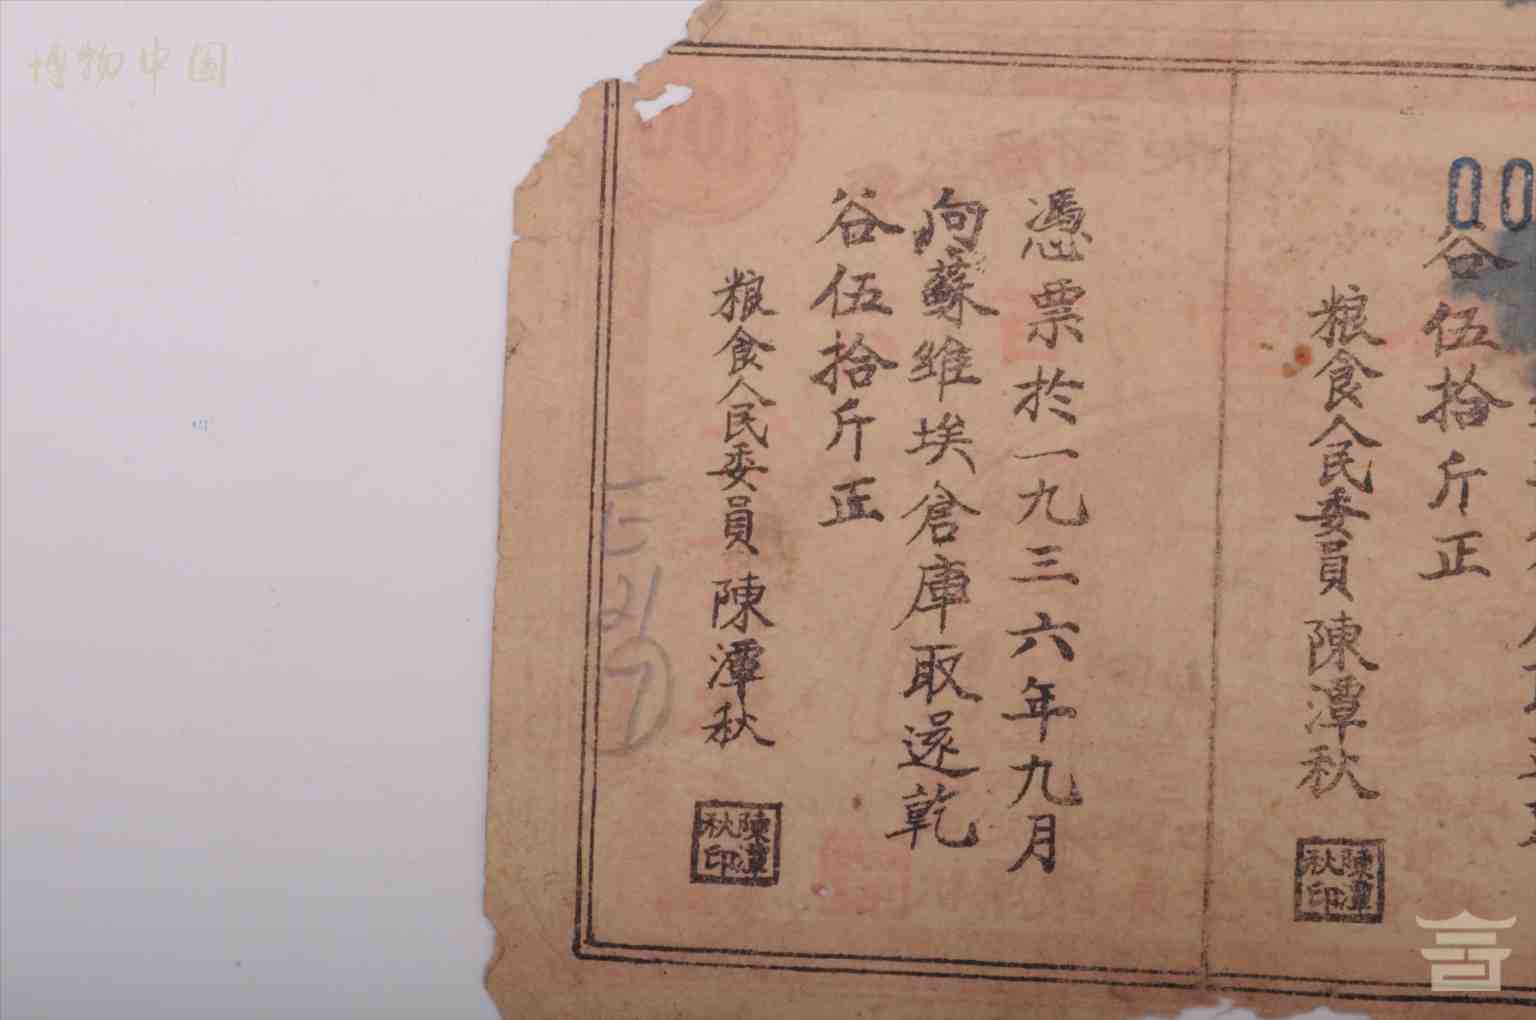 博物中国
00
谷伍拾斤正
粮食人民委員 陳潭秋
陳潭秋印
憑票於一九三六年九月
向蘇維埃倉庫取還乾
谷伍拾斤正
粮食人民委員 陳潭秋
陳潭秋印